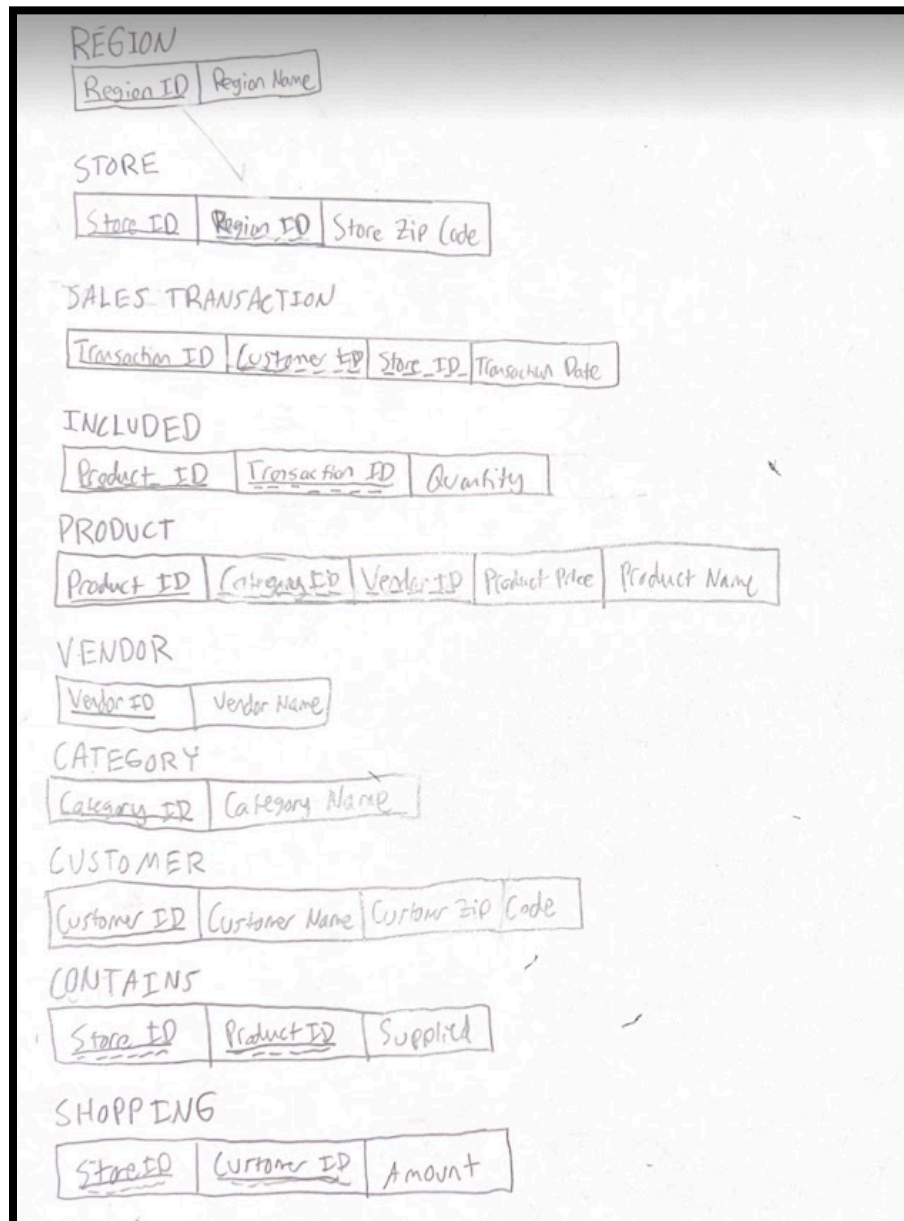 REGION
Region ID Region Name
STORE
Store ID Region ID Store Zip Code
SALES TRANSACTION
Transaction ID Customer ID Store ID Transaction Date
INCLUDED
Product ID Transaction ID Quantity
PRODUCT
Product ID Category ID Vendor ID Product Price Product Name
VENDOR
Vendor ID Vendor Name
CATEGORY
Category ID Category Name
CUSTOMER
Customer ID Customer Name Customer Zip Code
CONTAINS
Store ID Product ID Supplied
SHOPPING
Store ID Customer ID Amount